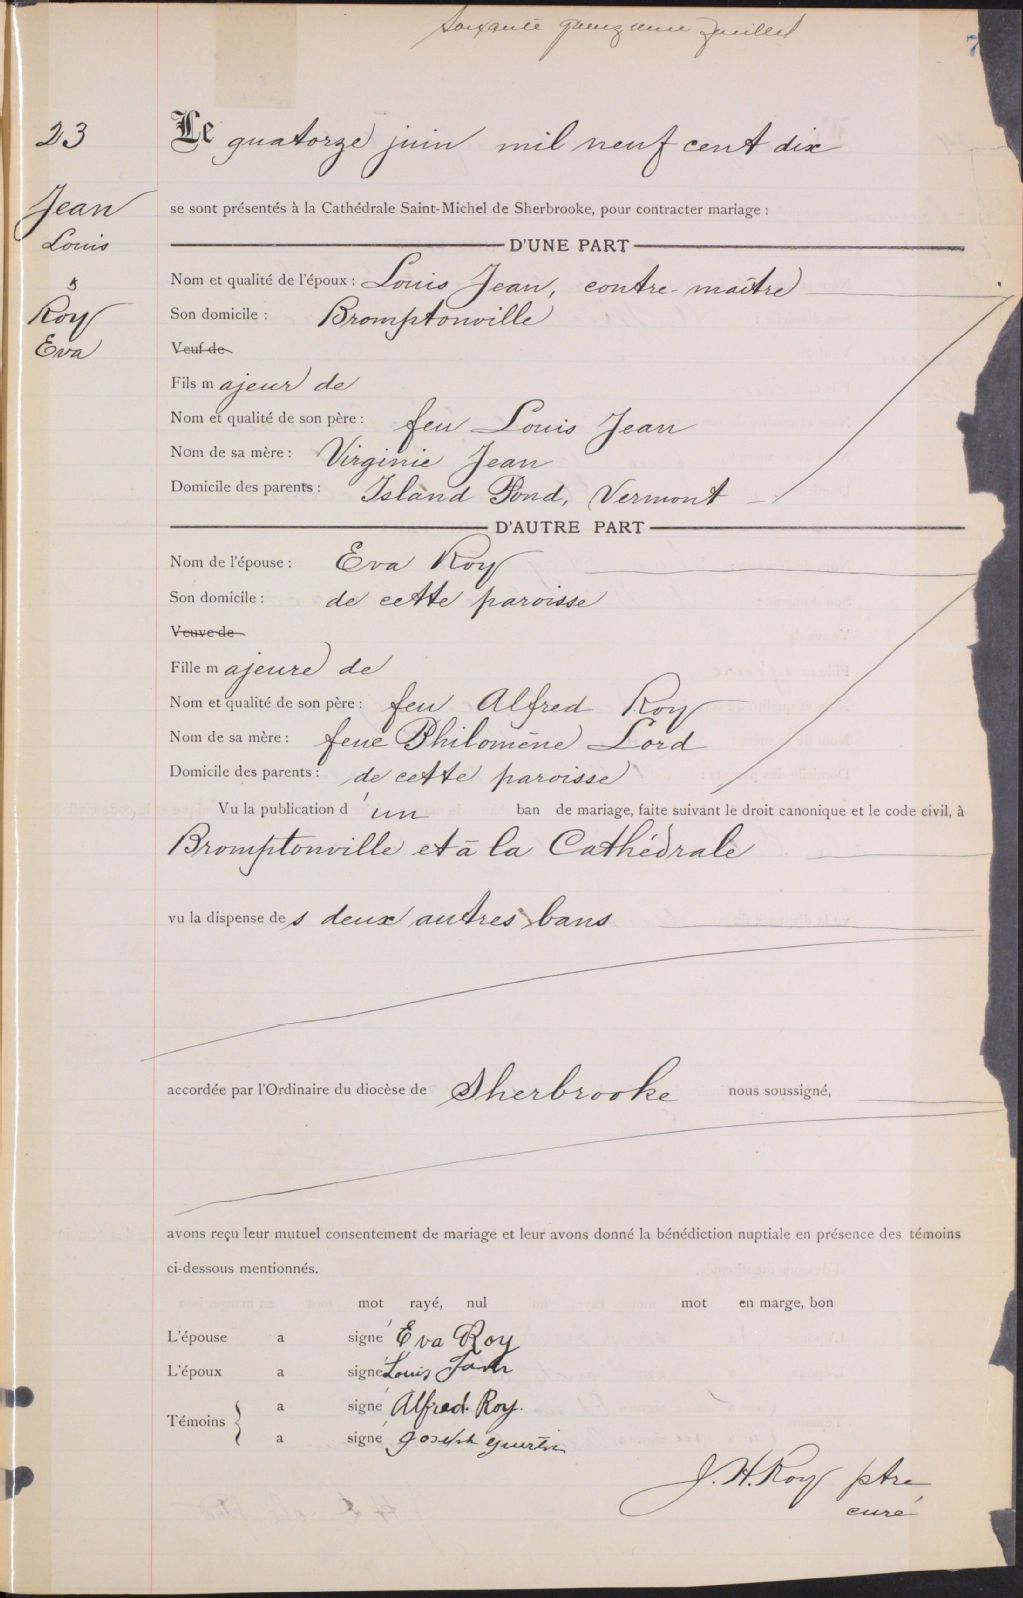 Soixante quinzième feuillet
7
23
Le quatorze juin mil neuf cent dix
Jean
Louis
&
Roy
Eva
se sont présentés à la Cathédrale Saint-Michel de Sherbrooke, pour contracter mariage :
D'UNE PART
Nom et qualité de l'époux : Louis Jean, contre-maître
Son domicile : Bromptonville
Veuf de
Fils majeur de
Nom et qualité de son père : feu Louis Jean
Nom de sa mère : Virginie Jean
Domicile des parents : Island Pond, Vermont
D'AUTRE PART
Nom de l'épouse : Eva Roy
Son domicile : de cette paroisse
Veuve de
Fille majeure de
Nom et qualité de son père : feu Alfred Roy
Nom de sa mère : feue Philomène Lord
Domicile des parents : de cette paroisse
Vu la publication d'un ban de mariage, faite suivant le droit canonique et le code civil, à
Bromptonville et à la Cathédrale
vu la dispense des deux autres bans
accordée par l'Ordinaire du diocèse de Sherbrooke nous soussigné,
avons reçu leur mutuel consentement de mariage et leur avons donné la bénédiction nuptiale en présence des témoins
ci-dessous mentionnés.
mot rayé, nul mot en marge, bon
L'épouse a signé Eva Roy
L'époux a signé Louis Jean
Témoins { a signé Alfred Roy.
a signé Joseph Guertin
J. H. Roy ptre
curé